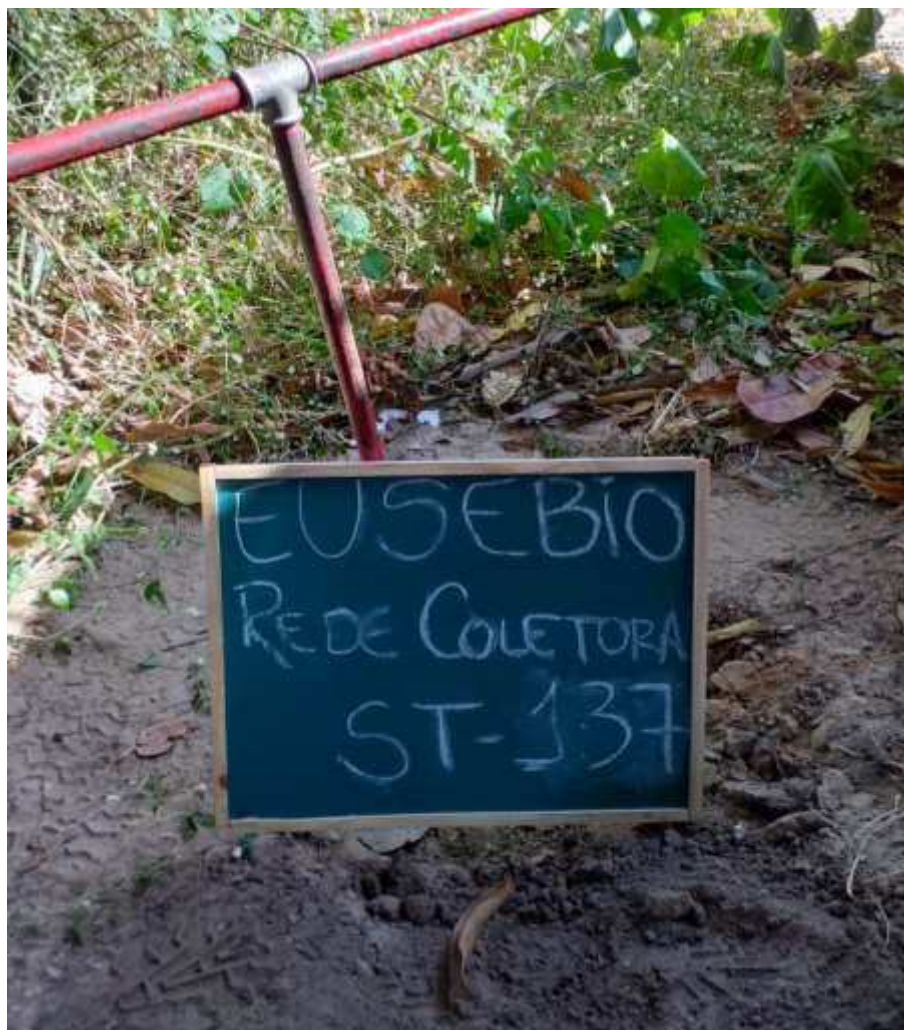 EUSEBiO
REDE COLETORA
ST-137